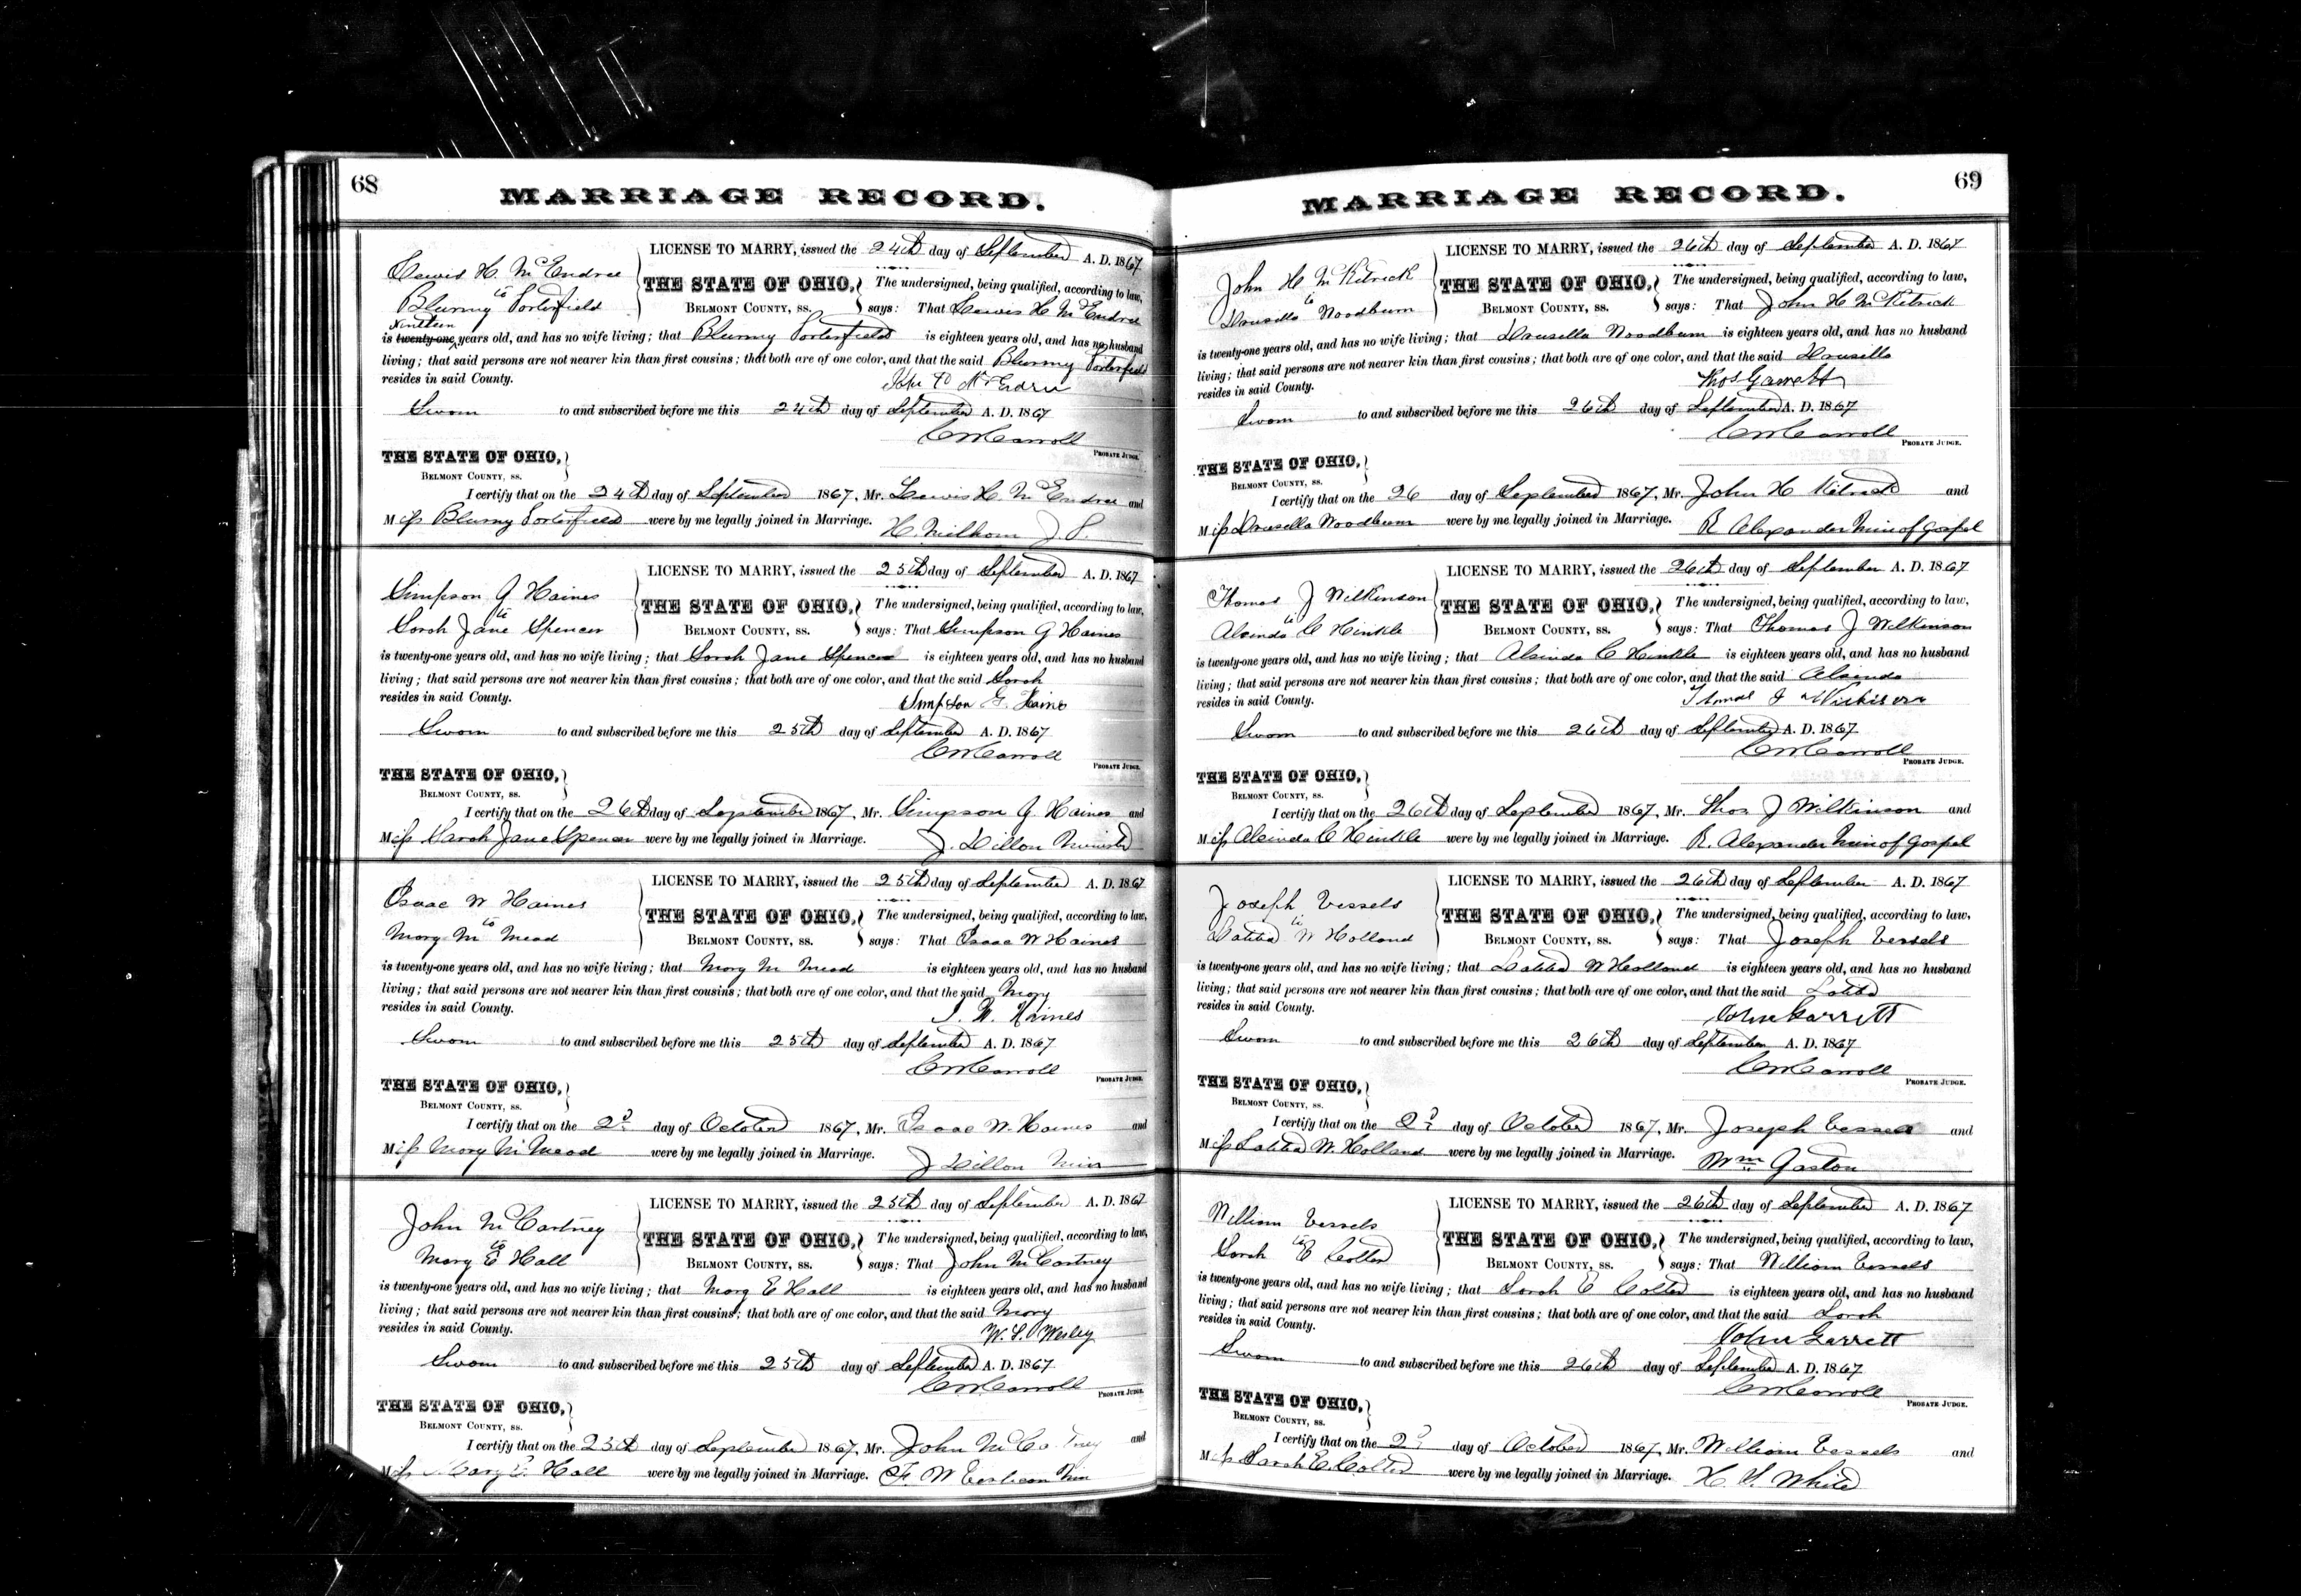 68
MARRIAGE RECORD.
Lewis H. McEndree
to
Blurmy Porterfield
LICENSE TO MARRY, issued the 24th day of September A. D. 1867
THE STATE OF OHIO,
BELMONT COUNTY, ss.
The undersigned, being qualified, according to law,
says: That Lewis H McEndree
Nineteen
is twenty-one years old, and has no wife living; that Blurmy Porterfield is eighteen years old, and has no husband
living; that said persons are not nearer kin than first cousins; that both are of one color, and that the said Blurmy Porterfield
resides in said County.
McEndree
Sworn to and subscribed before me this 24th day of September A. D. 1867
PROBATE JUDGE.
THE STATE OF OHIO,
BELMONT COUNTY, ss.
I certify that on the 24th day of September 1867, Mr. Lewis H. McEndree and
Miss Blurmy Porterfield were by me legally joined in Marriage.
H. Milhorn J. P.
Simpson G Haines
to
Sarah Jane Spencer
LICENSE TO MARRY, issued the 25th day of September A. D. 1867
THE STATE OF OHIO,
BELMONT COUNTY, ss.
The undersigned, being qualified, according to law,
says: That Simpson G Haines
is twenty-one years old, and has no wife living; that Sarah Jane Spencer is eighteen years old, and has no husband
living; that said persons are not nearer kin than first cousins; that both are of one color, and that the said Sarah
resides in said County.
Simpson G. Haines
Sworn to and subscribed before me this 25th day of September A. D. 1867
PROBATE JUDGE.
THE STATE OF OHIO,
BELMONT COUNTY, ss.
I certify that on the 26th day of September 1867, Mr. Simpson G. Haines and
Miss Sarah Jane Spencer were by me legally joined in Marriage.
J. Dillon Minister
Isaac W Haines
to
Mary M Mead
LICENSE TO MARRY, issued the 25th day of September A. D. 1867
THE STATE OF OHIO,
BELMONT COUNTY, ss.
The undersigned, being qualified, according to law,
says: That Isaac W Haines
is twenty-one years old, and has no wife living; that Mary M Mead is eighteen years old, and has no husband
living; that said persons are not nearer kin than first cousins; that both are of one color, and that the said Mary
resides in said County.
I. W. Haines
Sworn to and subscribed before me this 25th day of September A. D. 1867
PROBATE JUDGE.
THE STATE OF OHIO,
BELMONT COUNTY, ss.
I certify that on the 2d day of October 1867, Mr. Isaac W. Haines and
Miss Mary M Mead were by me legally joined in Marriage.
J Dillon Min
John McCartney
to
Mary E Hall
LICENSE TO MARRY, issued the 25th day of September A. D. 1867
THE STATE OF OHIO,
BELMONT COUNTY, ss.
The undersigned, being qualified, according to law,
says: That John McCartney
is twenty-one years old, and has no wife living; that Mary E Hall is eighteen years old, and has no husband
living; that said persons are not nearer kin than first cousins; that both are of one color, and that the said Mary
resides in said County.
W. S. Wesley
Sworn to and subscribed before me this 25th day of September A. D. 1867
PROBATE JUDGE.
THE STATE OF OHIO,
BELMONT COUNTY, ss.
I certify that on the 25th day of September 1867, Mr. John McCartney and
Miss Mary E. Hall were by me legally joined in Marriage.
F. W Min
69
MARRIAGE RECORD.
John H McKitrick
to
Drusilla Woodburn
LICENSE TO MARRY, issued the 26th day of September A. D. 1867
THE STATE OF OHIO,
BELMONT COUNTY, ss.
The undersigned, being qualified, according to law,
says: That John H McKitrick
is twenty-one years old, and has no wife living; that Drusella Woodburn is eighteen years old, and has no husband
living; that said persons are not nearer kin than first cousins; that both are of one color, and that the said Drusella
resides in said County.
Thos Garrett
Sworn to and subscribed before me this 26th day of September A. D. 1867
PROBATE JUDGE.
THE STATE OF OHIO,
BELMONT COUNTY, ss.
I certify that on the 26 day of September 1867, Mr. John H Kitrick and
Miss Drusella Woodburn were by me legally joined in Marriage.
R Alexander Min of Gospel
Thomas J Wilkinson
to
Alcinda C Hinkle
LICENSE TO MARRY, issued the 26th day of September A. D. 1867
THE STATE OF OHIO,
BELMONT COUNTY, ss.
The undersigned, being qualified, according to law,
says: That Thomas J Wilkinson
is twenty-one years old, and has no wife living; that Alcinda C Hinkle is eighteen years old, and has no husband
living; that said persons are not nearer kin than first cousins; that both are of one color, and that the said Alcinda
resides in said County.
Thomas J Wilkison
Sworn to and subscribed before me this 26th day of September A. D. 1867
PROBATE JUDGE.
THE STATE OF OHIO,
BELMONT COUNTY, ss.
I certify that on the 26th day of September 1867, Mr. Thos J Wilkinson and
Miss Alcinda C Hinkle were by me legally joined in Marriage.
R. Alexander Min of Gospel
Joseph Vessels
to
Latitia W Holland
LICENSE TO MARRY, issued the 26th day of September A. D. 1867
THE STATE OF OHIO,
BELMONT COUNTY, ss.
The undersigned, being qualified, according to law,
says: That Joseph Vessels
is twenty-one years old, and has no wife living; that Latitia W Holland is eighteen years old, and has no husband
living; that said persons are not nearer kin than first cousins; that both are of one color, and that the said Latitia
resides in said County.
John Garrett
Sworn to and subscribed before me this 26th day of September A. D. 1867
PROBATE JUDGE.
THE STATE OF OHIO,
BELMONT COUNTY, ss.
I certify that on the 2d day of October 1867, Mr. Joseph Vessels and
Miss Latitia W. Holland were by me legally joined in Marriage.
Wm Gaston
William Vessels
to
Sarah E Colter
LICENSE TO MARRY, issued the 26th day of September A. D. 1867
THE STATE OF OHIO,
BELMONT COUNTY, ss.
The undersigned, being qualified, according to law,
says: That William Vessels
is twenty-one years old, and has no wife living; that Sarah E Colter is eighteen years old, and has no husband
living; that said persons are not nearer kin than first cousins; that both are of one color, and that the said Sarah
resides in said County.
John Garrett
Sworn to and subscribed before me this 26th day of September A. D. 1867
PROBATE JUDGE.
THE STATE OF OHIO,
BELMONT COUNTY, ss.
I certify that on the 2d day of October 1867, Mr. William Vessels and
Miss Sarah E. Colter were by me legally joined in Marriage.
H. S. White